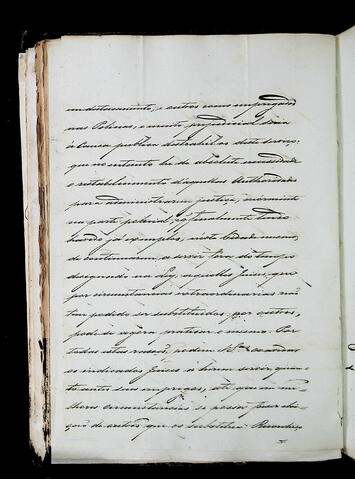 em destacamento, e outros como empregados
nas Policias, e muito prejudicial seria
á causa publica distrahil-os deste serviço;
que no entanto ha de absoluta necessidade
o restabelecimento d'aquellas Authoridades
para administrarem justiça, mormente
na parte policial, e finalmente tendo
havido já exemplos, nesta Cidade mesmo,
de continuarem a servir fora do tempo
designado na Ley, aquelles Juizes, que
por circumstancias extraordinarias não
tem podido ser substituidos por outros,
pode-se agora praticar o mesmo. Por
todas estas rasões, podem V.Sas mandar
os indicados Juizes a hirem servir, quan
to antes seus empregos, até que em me-
lhores circumstancias se possa fazer elei-
ção de outros que os substitua.